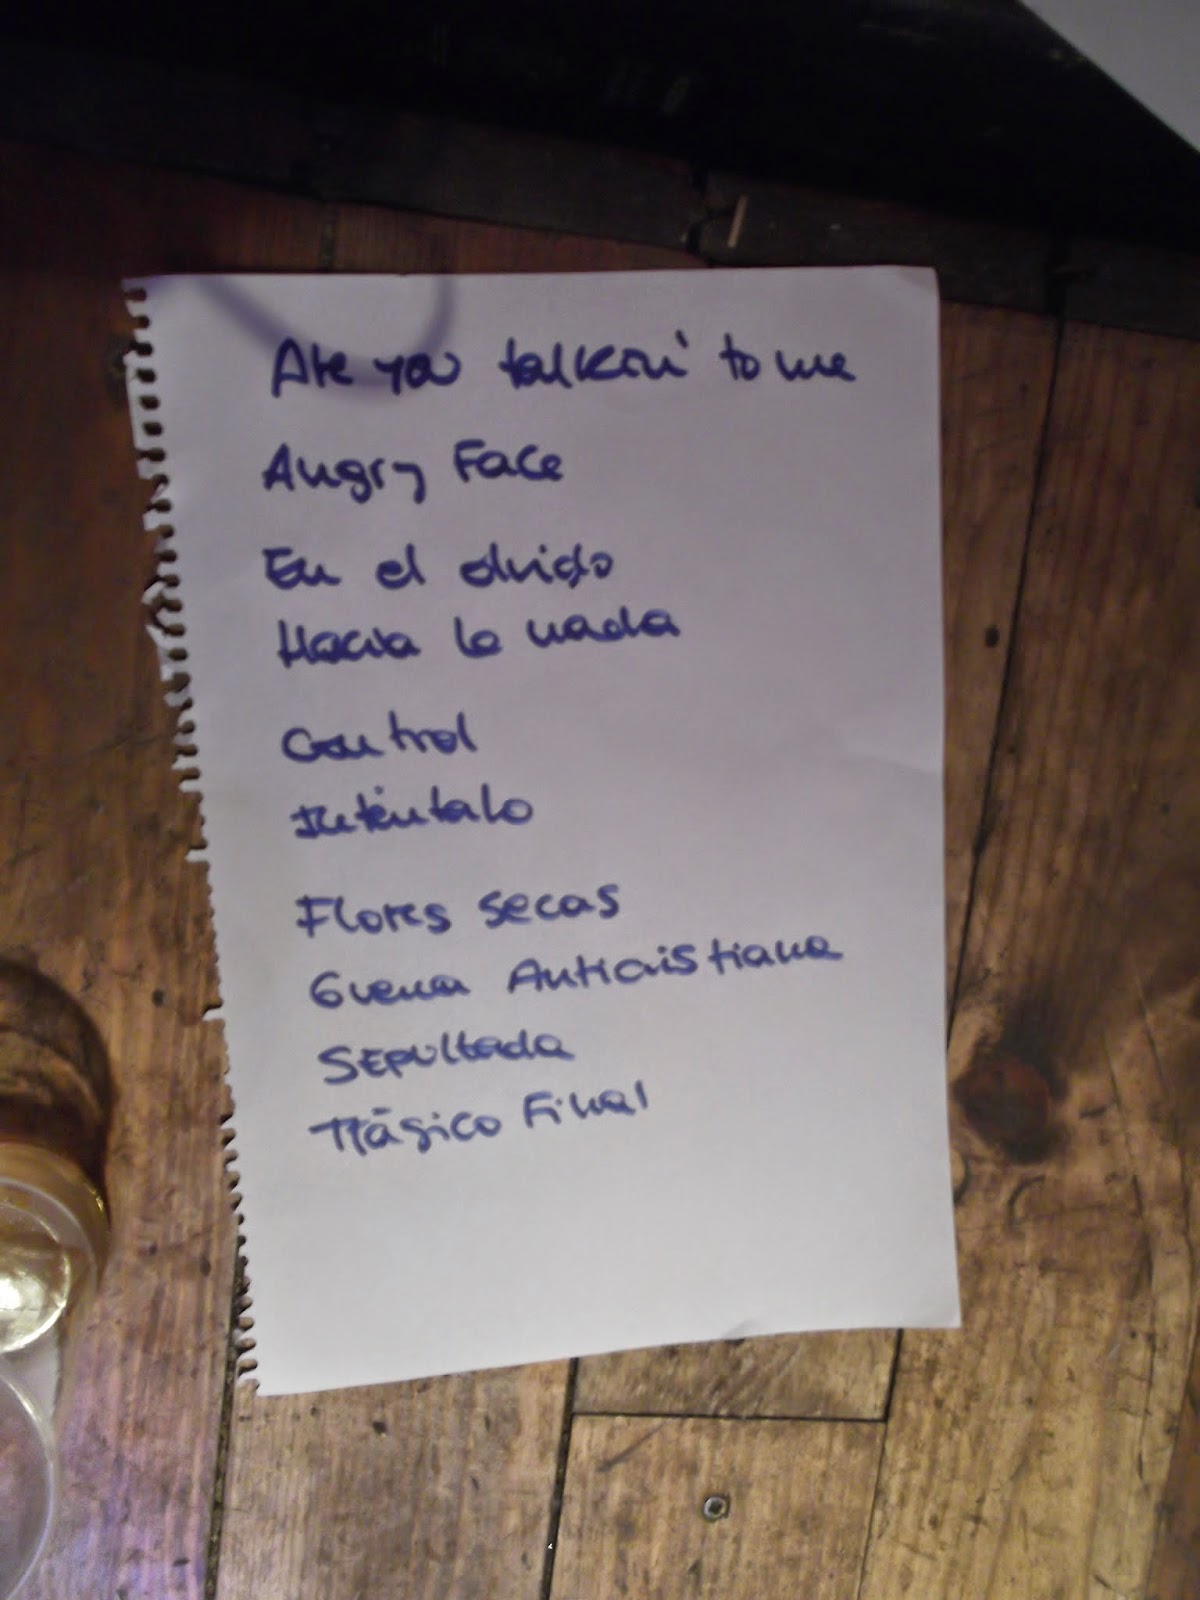 Are you talkin' to me
Angry Face
En el olvido
Hacia la nada
Control
Inténtalo
Flores secas
Guerra Anticristiana
Sepultada
Trágico Final